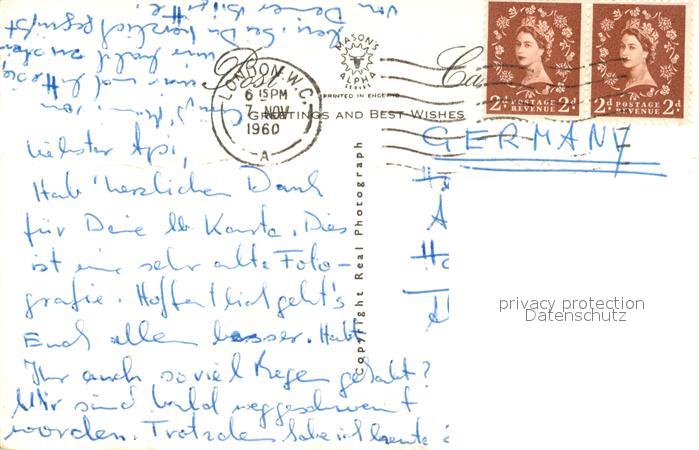 Post Ca
MASON'S
ALPHA
SERIES
PRINTED IN ENG
LONDON. W.C.
6 15PM
7 NOV
1960
A
GREETINGS AND BEST WISHES
2d POSTAGE REVENUE 2d
2d POSTAGE REVENUE 2d
GERMANY
Liebster Api,
Hab' herzlichen Dank
für Deine lb Karte. Dies
ist eine sehr alte Foto-
grafie. Hoffentlich geht's
Euch allen besser. Habt
Ihr auch so viel Regen gehabt?
Wir sind bald weggeschwemmt
worden. Trotzdem habe ich heute
Sei Du herzlich gegrüsst
von Deiner
Copyright Real Photograph
privacy protection
Datenschutz